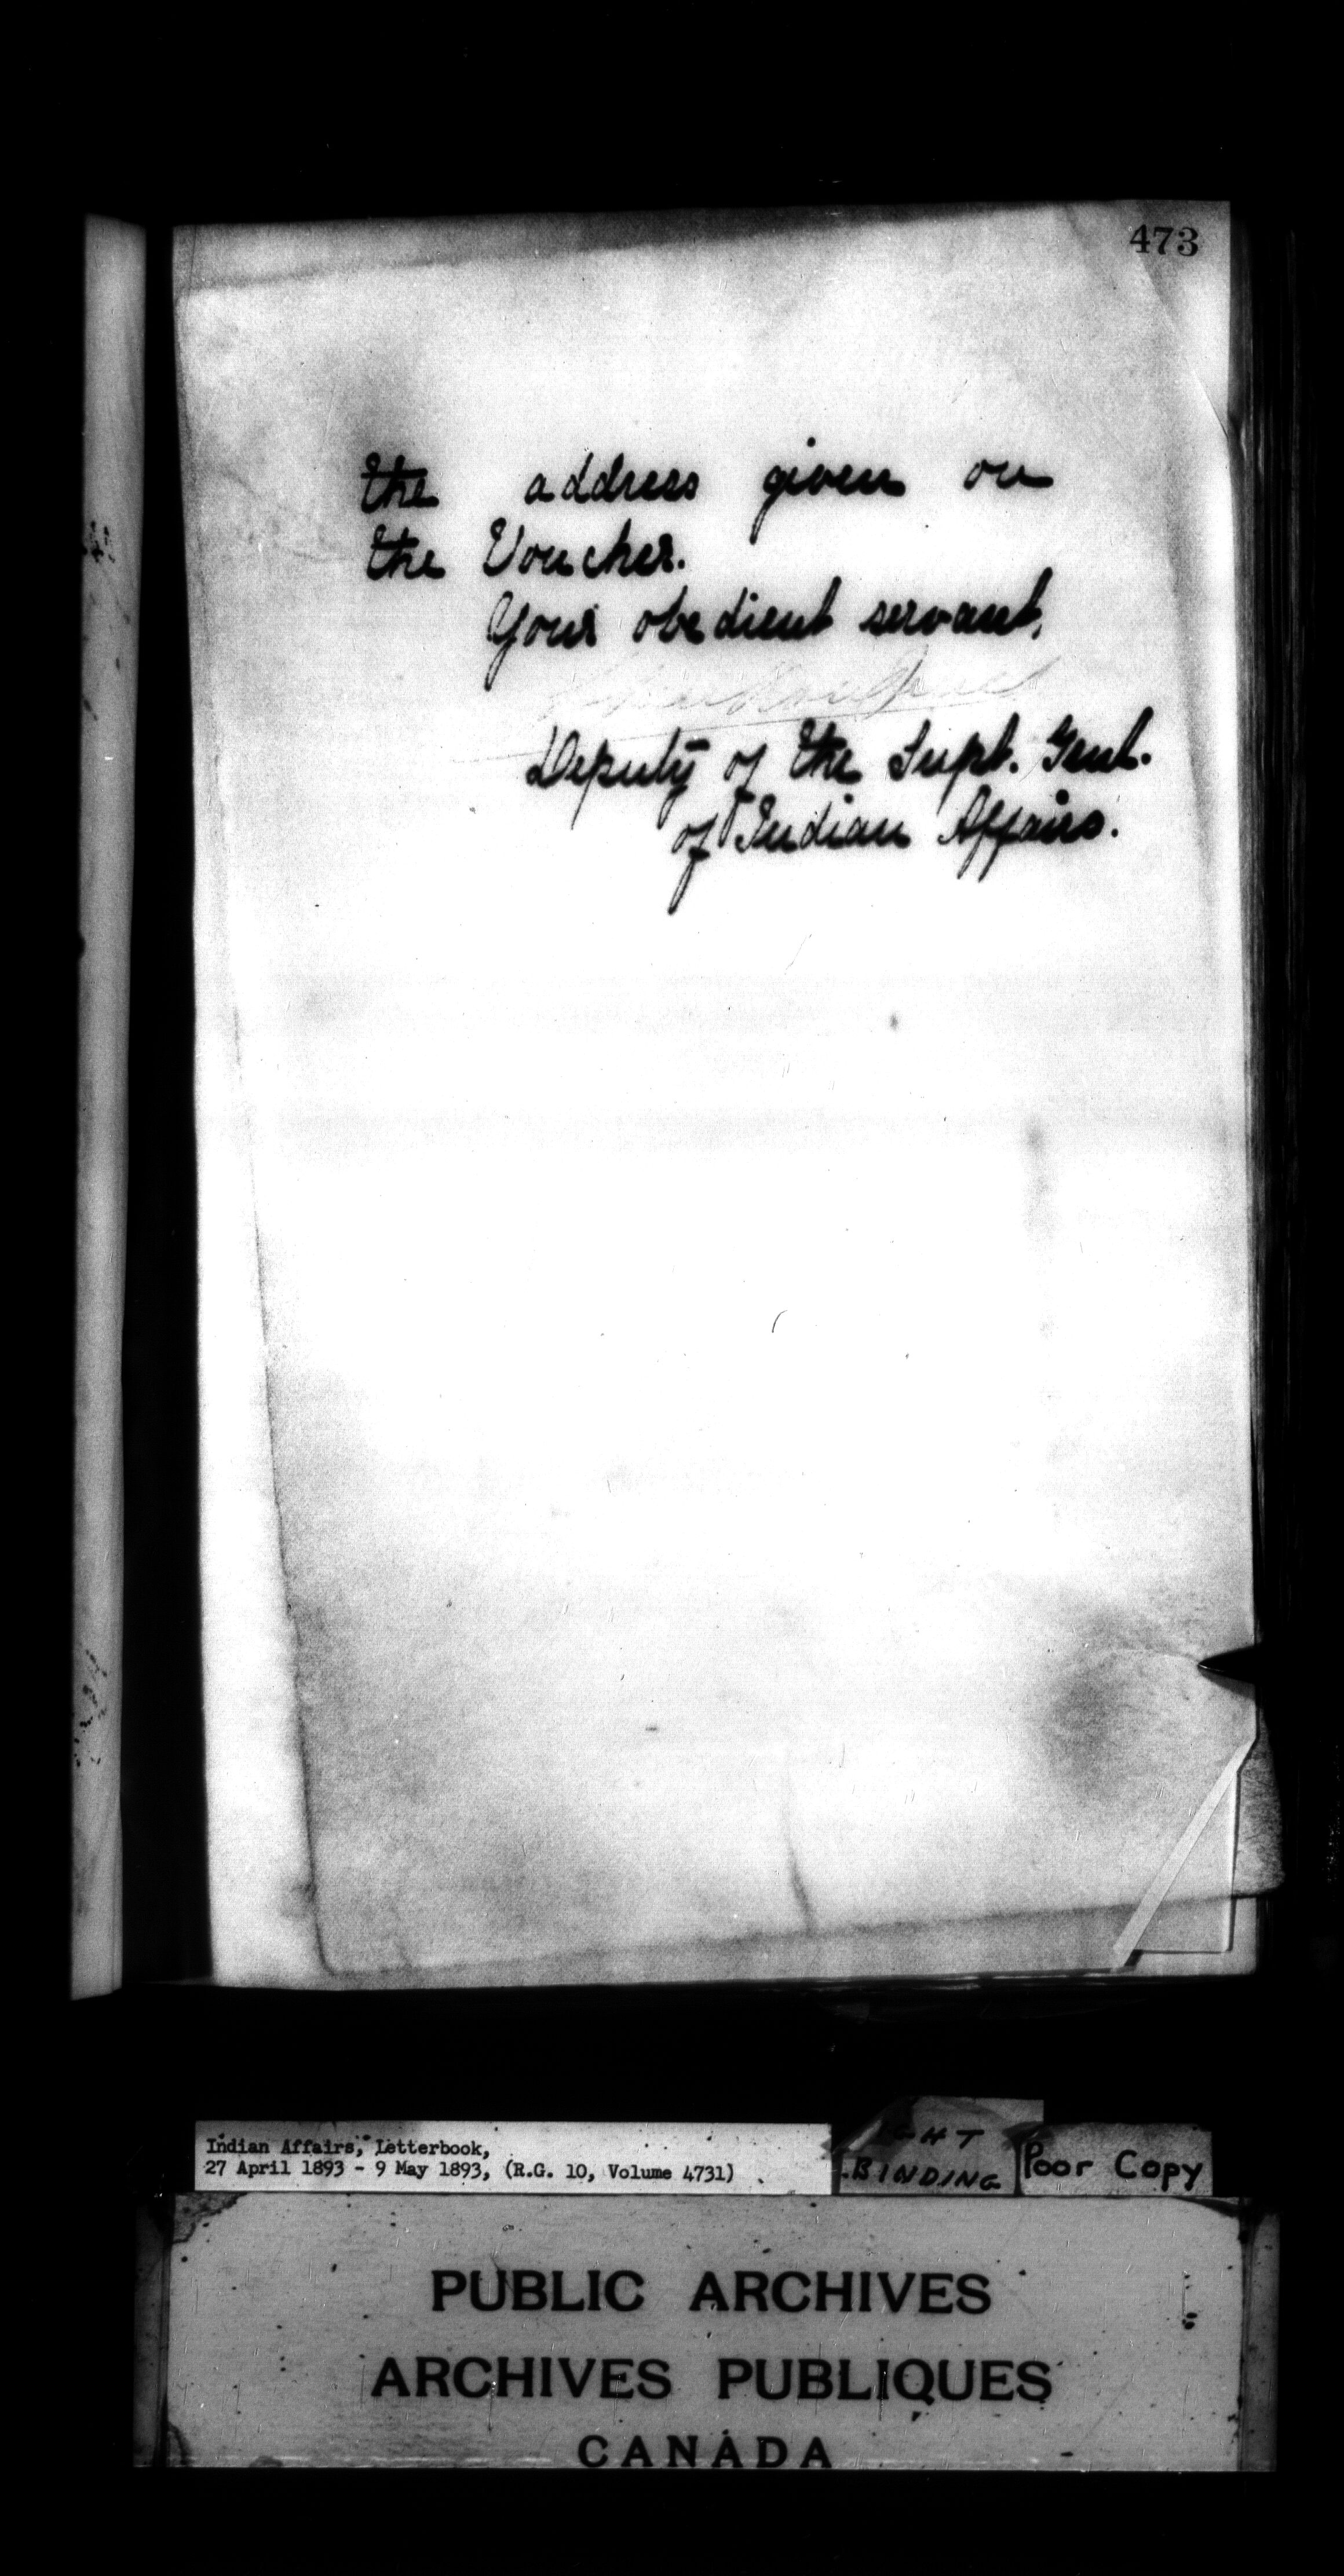 473
the address given on
the Voucher.
Your obedient servant,
Deputy of the Supt. Genl.
of Indian Affairs.
Indian Affairs, Letterbook,
27 April 1893 - 9 May 1893, (R.G. 10, Volume 4731)
BINDING
Poor Copy
PUBLIC ARCHIVES
ARCHIVES PUBLIQUES
CANADA